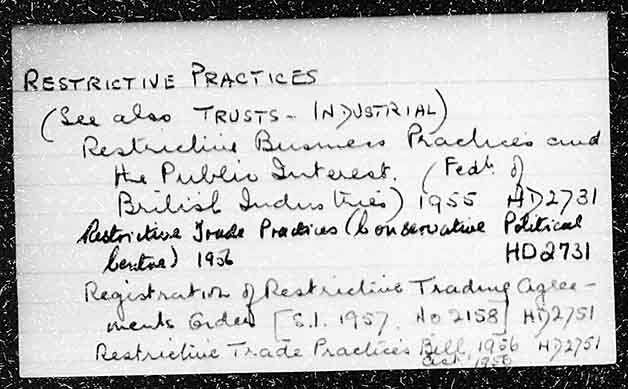 RESTRICTIVE PRACTICES
(See also TRUSTS - INDUSTRIAL)
Restrictive Business Practices and
the Public Interest. (Fedn. of
British Industries) 1955 HD2731
Restrictive Trade Practices (Conservative Political
Centre) 1956 HD2731
Registration of Restrictive Trading Agree-
ments Order [S.I. 1957. No 2158] HD2751
Restrictive Trade Practices Bill, 1956 HD2751
Act, 1956